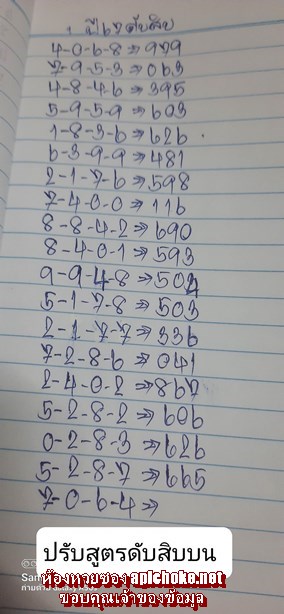 ปี67ดับสิบ
4-0-6-8⇒979
7-9-5-3⇒063
4-8-4-6⇒395
5-9-5-9⇒603
1-8-3-6⇒626
6-3-9-9⇒481
2-1-7-6⇒598
7-4-0-0⇒116
8-8-4-2⇒690
8-4-0-1⇒593
9-9-4-8⇒504
5-1-7-8⇒503
2-1-7-7⇒336
7-2-8-6⇒041
2-4-0-2⇒867
5-2-8-2⇒606
0-2-8-3⇒626
5-2-8-7⇒665
7-0-6-4⇒
ปรับสูตรดับสิบบน
ห้องหวยซอง apichoke.net
ขอบคุณเจ้าของข้อมูล